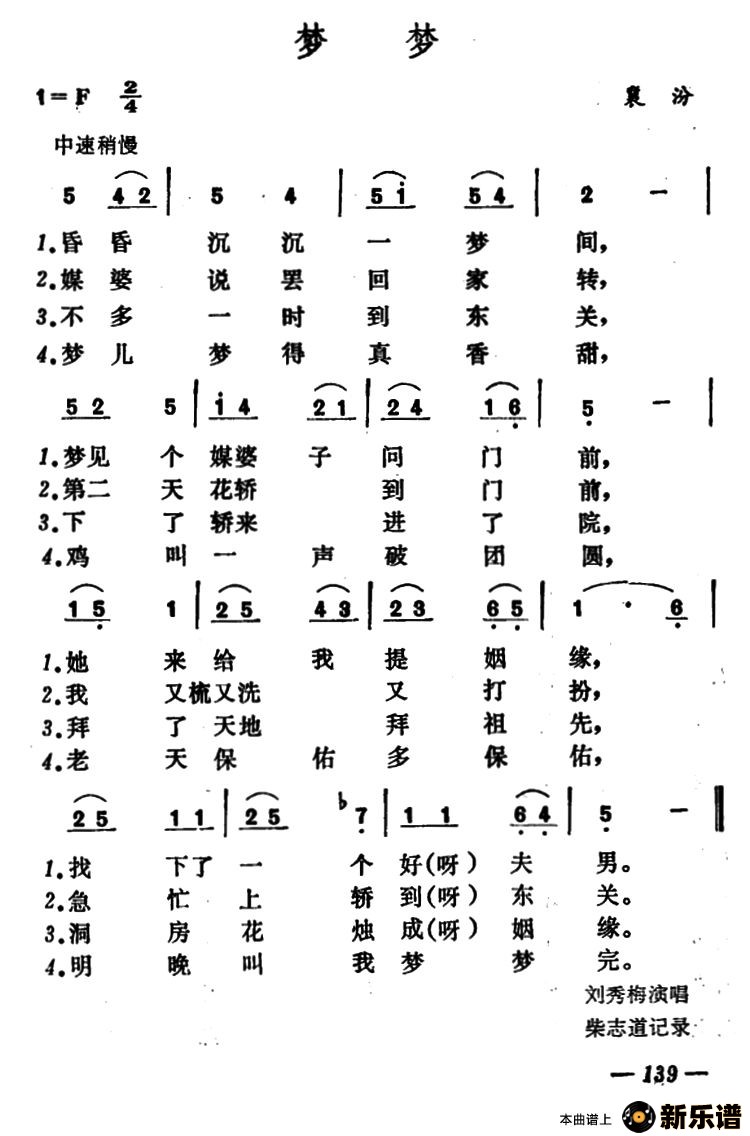 梦 梦
1=F 2/4 襄 汾
中速稍慢
5 4 2 | 5 4 | 5 i | 5 4 | 2 — |
1.昏昏 沉 沉 一 梦 间，
2.媒婆 说 罢 回 家 转，
3.不多 一 时 到 东 关，
4.梦儿 梦 得 真 香 甜，
5 2 5 | i 4 2 1 | 2 4 1 6 | 5 — |
1.梦见 个 媒婆 子 问 门 前，
2.第二 天 花轿 到 门 前，
3.下 了 轿来 进 了 院，
4.鸡 叫 一 声 破 团 圆，
1 5 1 | 2 5 4 3 | 2 3 6 5 | 1 · 6 |
1.她 来 给 我 提 姻 缘，
2.我 又梳又洗 又 打 扮，
3.拜 了 天地 拜 祖 先，
4.老 天 保 佑 多 保 佑，
2 5 1 1 | 2 5 ♭7 | 1 1 6 4 | 5 — ‖
1.找 下了 一 个 好(呀) 夫 男。
2.急 忙 上 轿 到(呀) 东 关。
3.洞 房 花 烛 成(呀) 姻 缘。
4.明 晚 叫 我 梦 梦 完。
刘秀梅演唱
柴志道记录
— 139 —
本曲谱上 新乐谱